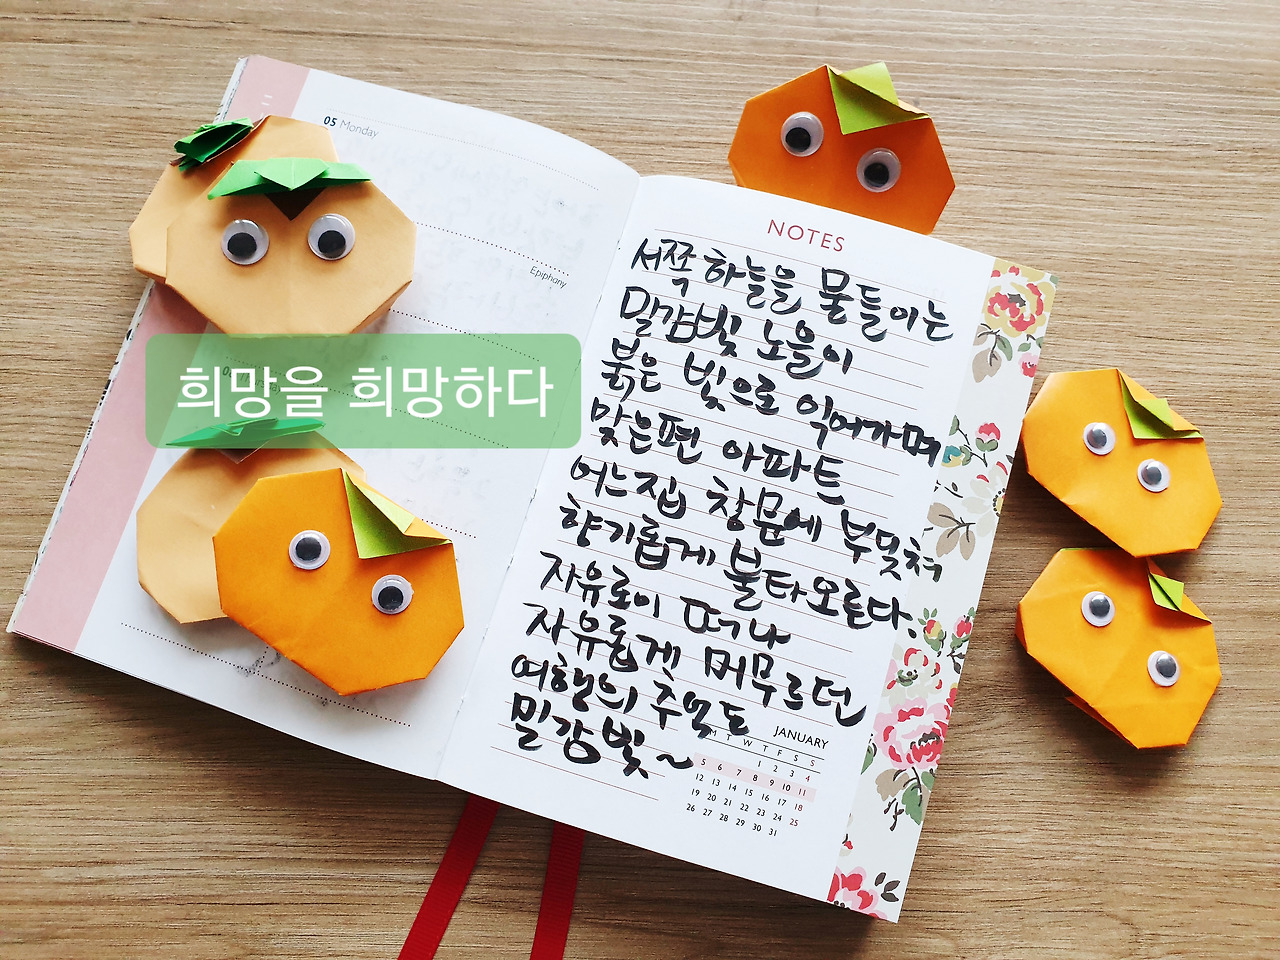 05 Monday
Epiphany
희망을 희망하다
NOTES
서쪽 하늘을 물들이는
밀감빛 노을이
붉은 빛으로 익어가며
맞은편 아파트
어느집 창문에 부딪쳐
향기롭게 불타오른다.
자유로이 떠나
자유롭게 머무르던
여행의 추억도
밀감빛~
JANUARY
M T W T F S S
1 2 3 4
5 6 7 8 9 10 11
12 13 14 15 16 17 18
19 20 21 22 23 24 25
26 27 28 29 30 31